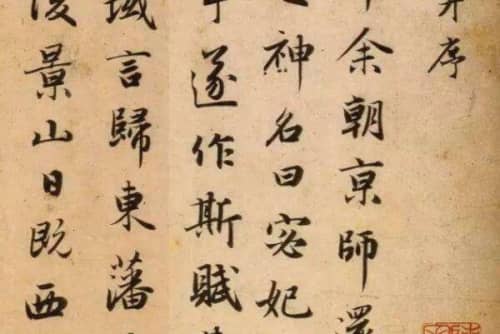 序
余朝亰師還
神名曰宓妃
遂作斯賦
域言歸東藩
景山日既西